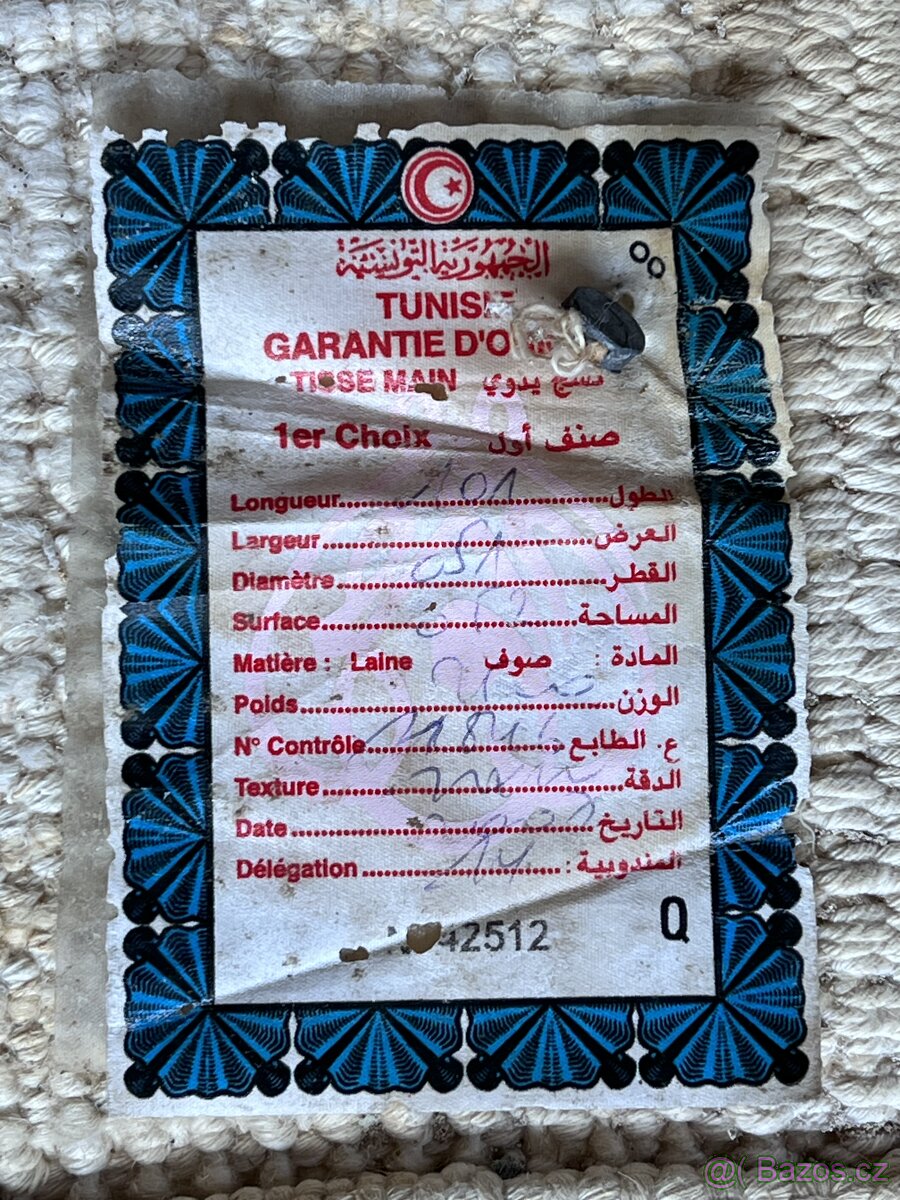 الجمهورية التونسية
OO
TUNISIE
GARANTIE D'O
TISSE MAIN نسج يدوي
1er Choix صنف أول
Longueur 101 الطول
Largeur العرض
Diamètre القطر
Surface المساحة
Matière : Laine صوف المادة :
Poids الوزن
N° Contrôle ع. الطابع
Texture الدقة
Date التاريخ
Délégation 14 المندوبية :
42512 Q
@( Bazos.cz